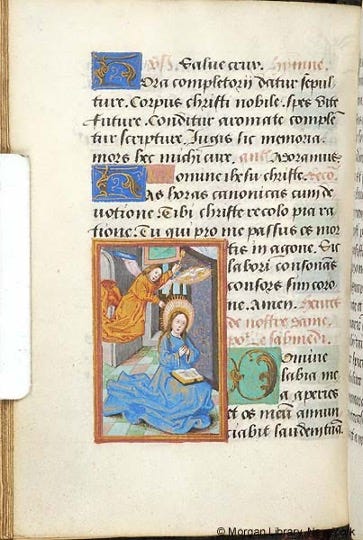 Salue crux. hymne.
Hora completorij datur sepul
ture. Corpus christi nobile. spes vite
future. Conditur aromate comple
tur scripture. Iugis sic memoria
mors hec michi cure. Adoramus
Domine ihesu christe.
Has horas canonicas cum de
uotione. Tibi christe recolo pia ra
tione. Tu qui pro me passus es mor
tis in agone. Sic
labori consonans
consors sim coro
ne. Amen. heures
de nostre dame.
Domine
labia me
a aperies
et os meum annun
ciabit laudem tuam.
© Morgan Library, New York